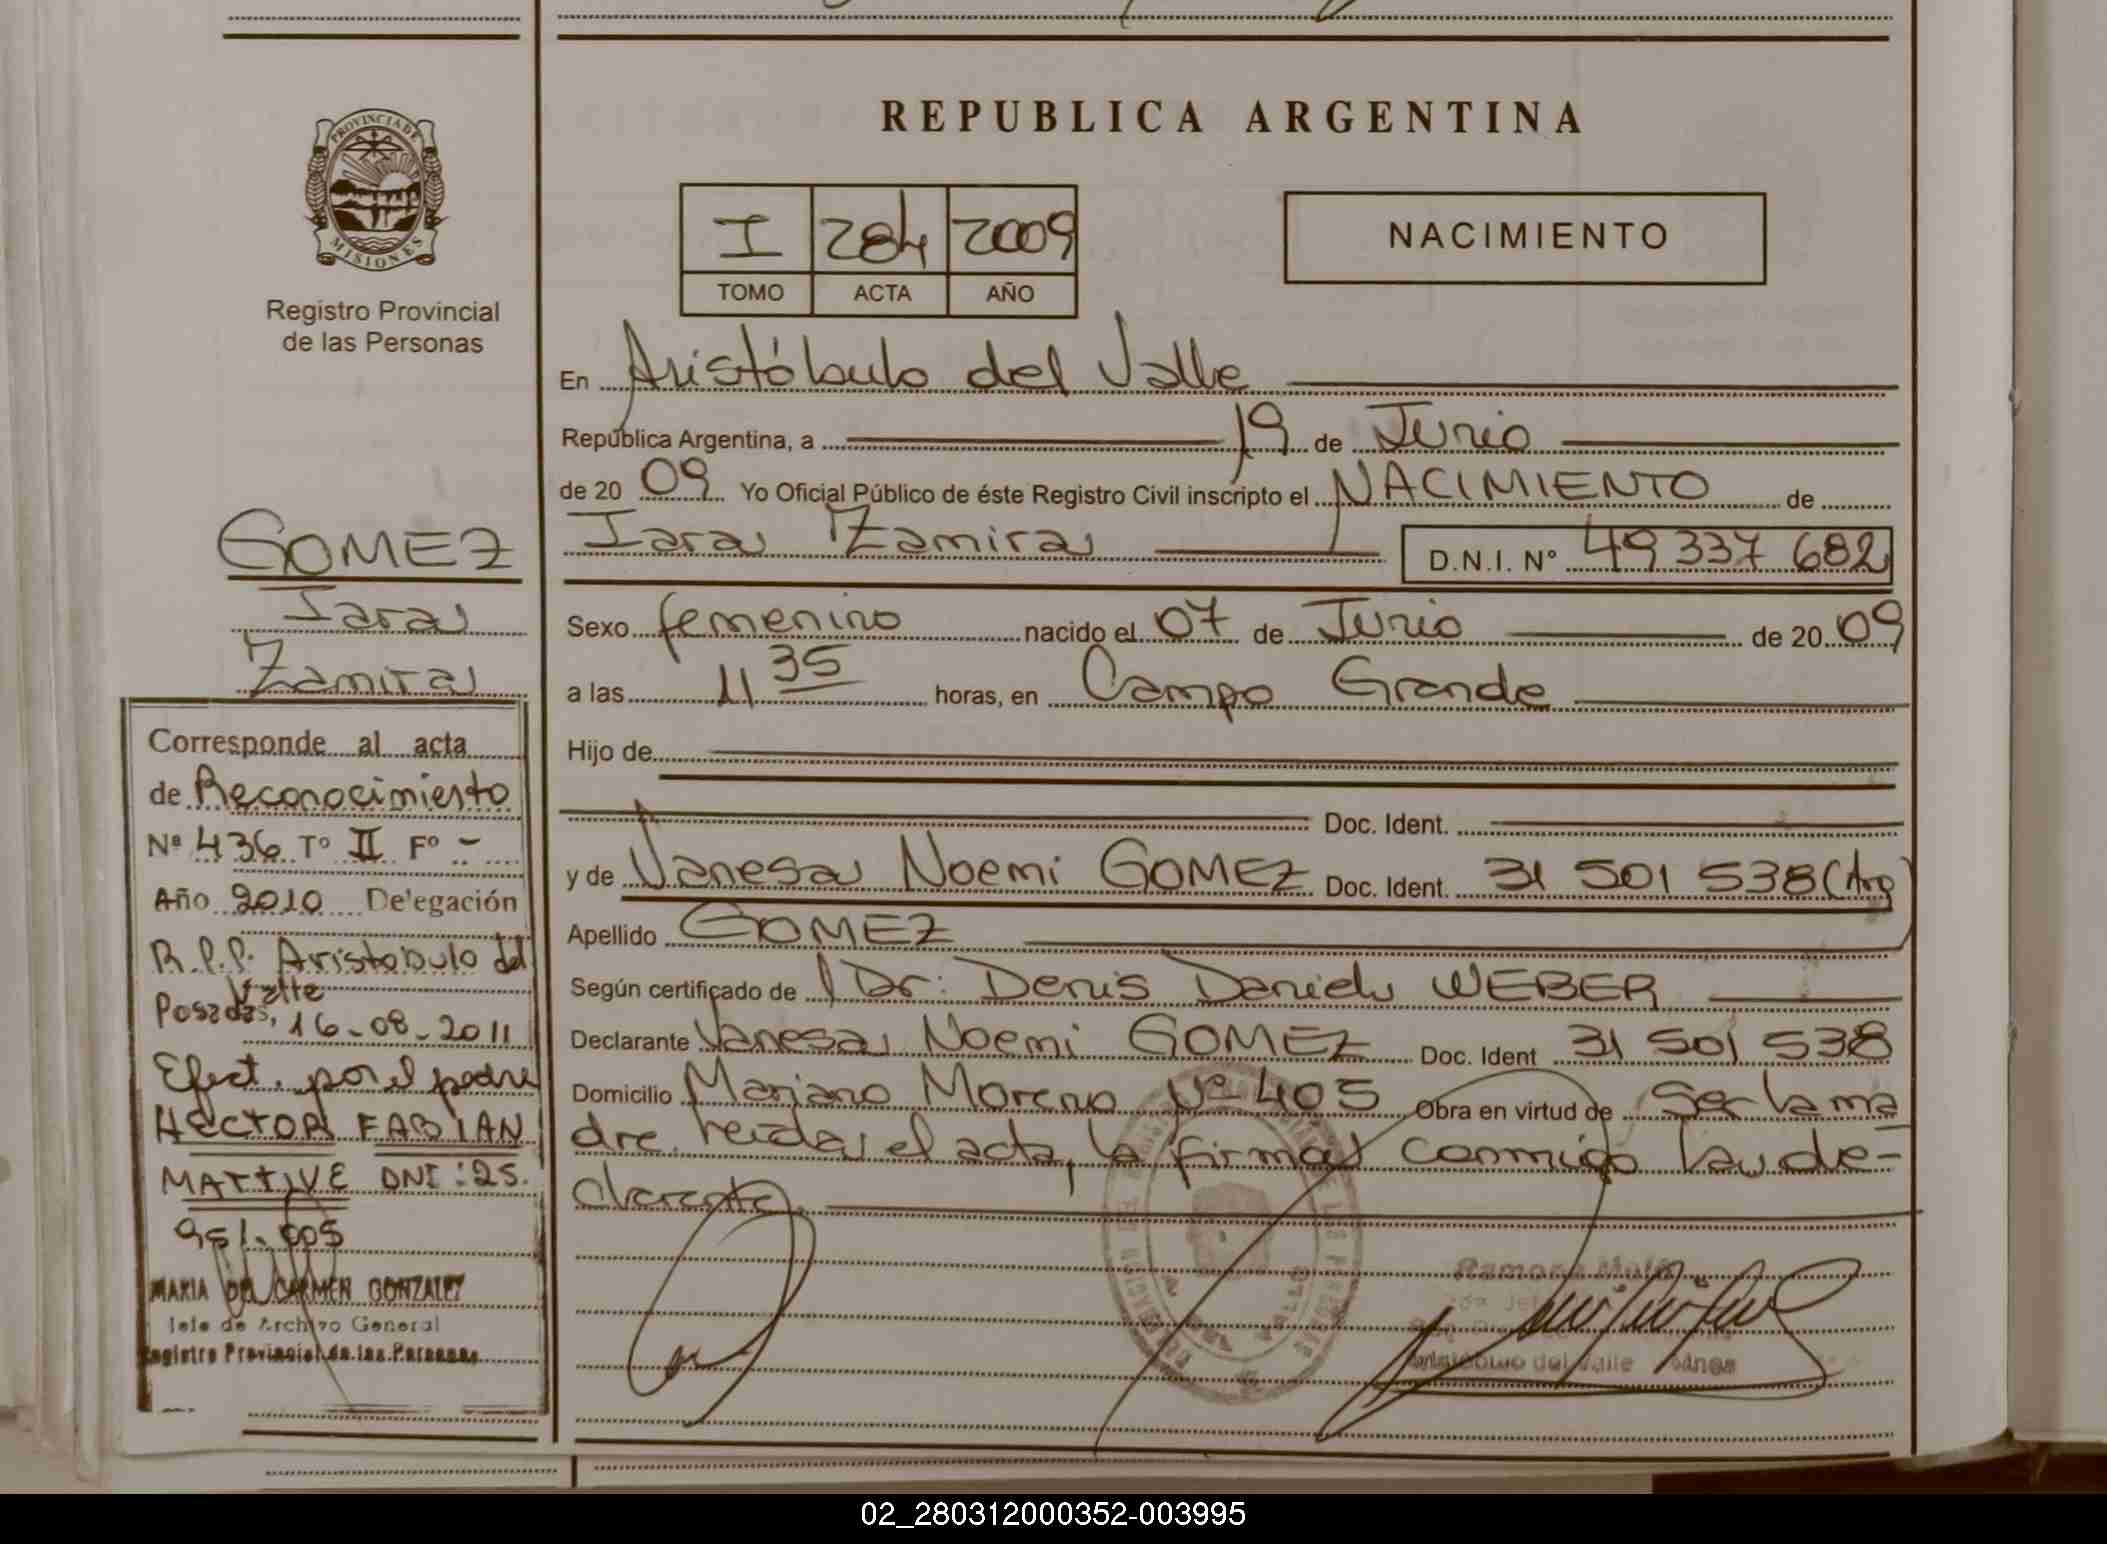 PROVINCIA DE
MISIONES
Registro Provincial
de las Personas
GOMEZ
Iara
Zamira
Corresponde al acta
de Reconocimiento
Nº 436 Tº II Fº -
Año 2010 Delegación
R.P.P. Aristobulo del
Valle
Posadas, 16-08-2011
Efect. por el padre
HECTOR FABIAN
MATTIVE DNI: 25.
951.005
MARIA DEL CARMEN GONZALEZ
Jefe de Archivo General
Registro Provincial de las Personas
REPUBLICA ARGENTINA
I 284 2009
TOMO ACTA AÑO
NACIMIENTO
En Aristóbulo del Valle
República Argentina, a 19 de Junio
de 20 09 Yo Oficial Público de éste Registro Civil inscripto el NACIMIENTO de
Iara Zamira D.N.I. Nº 49 337 682
Sexo femenino nacido el 07 de Junio de 20 09
a las 11 35 horas, en Campo Grande
Hijo de
Doc. Ident.
y de Vanesa Noemi GOMEZ Doc. Ident. 31 501 538 (Arg)
Apellido GOMEZ
Según certificado de Dr. Denis Daniel WEBER
Declarante Vanesa Noemi GOMEZ Doc. Ident 31 501 538
Domicilio Mariano Moreno Nº 405 Obra en virtud de Ser la ma
dre. Leida el acta, la firma conmigo la de-
clarante.
Aristóbulo del Valle
02_280312000352-003995